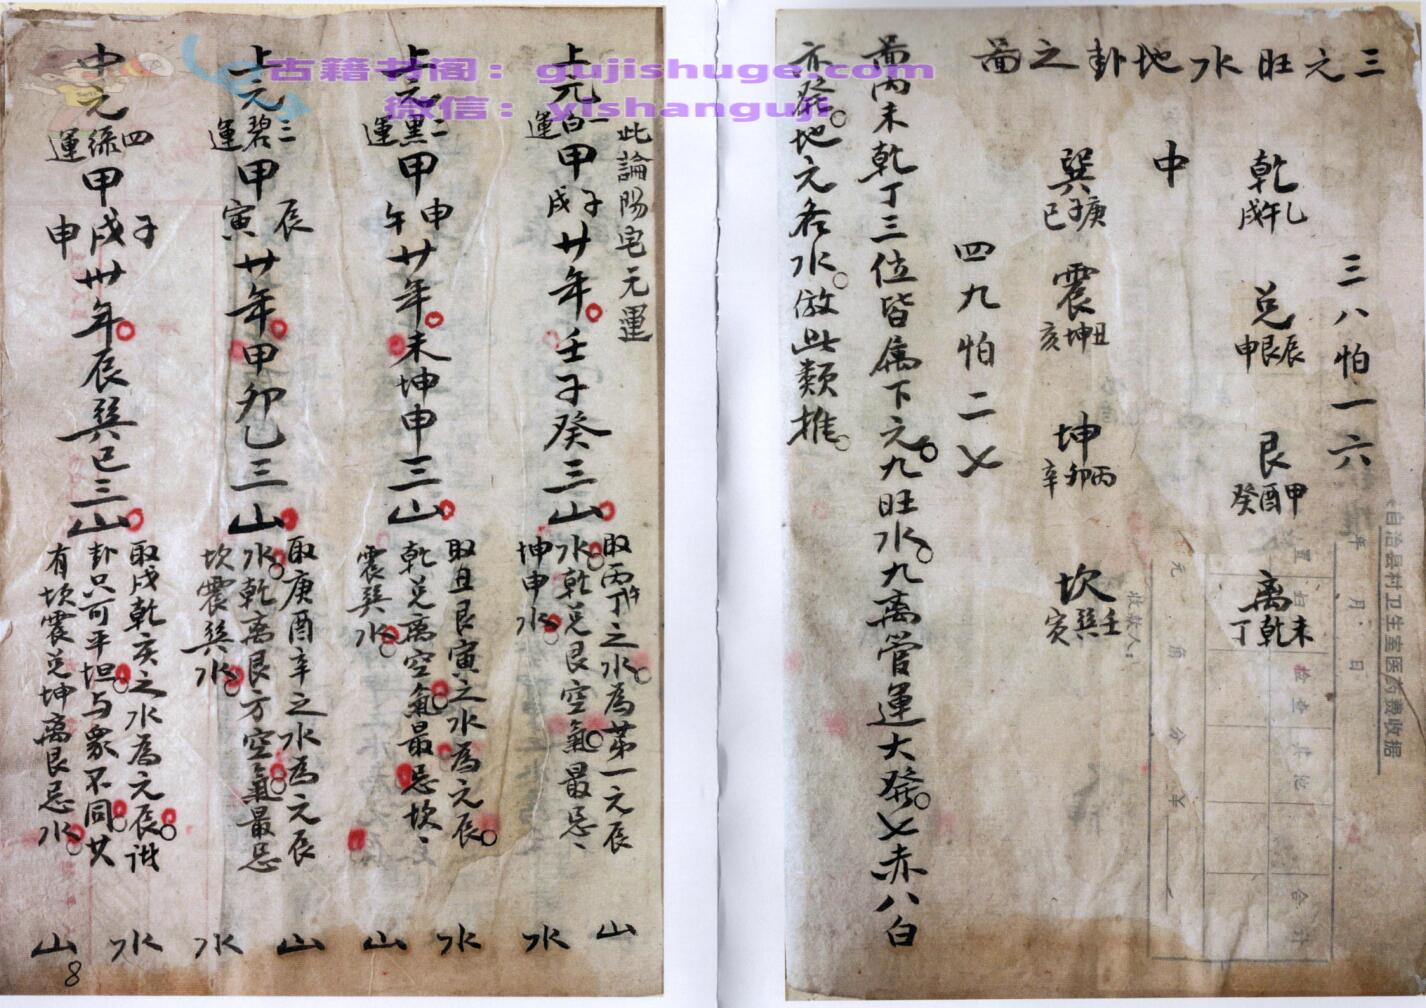 古籍书阁：gujishuge.com
微信：yishanguji
三元旺水地卦之啚
三八怕一六
乾 乙午戌
兑 辰艮申
艮 甲酉癸
离 未乾丁
中
巽 庚子巳
震 丑坤亥
坤 丙卯辛
坎 壬巽寅
四九怕二七
啚内未乾丁三位皆属下元九旺水九离管運大發七赤八白
亦發地元各水倣此類推
此論陽宅元運
上元一白運甲子戌廿年壬子癸三山
取丙午丁之水為苐一元辰
水乾兑艮空氣最忌
坤申水
山
水
上元二黑運甲申午廿年未坤申三山
取丑艮寅之水為元辰
乾兑离空氣最忌坎
震巽水
水
山
上元三碧運甲辰寅廿年甲卯乙三山
取庚酉辛之水為元辰
水乾离艮方空氣最忌
坎震巽水
山
水
中元四綠運甲子戌申卅年辰巽巳三山
取戌乾亥之水為元辰
卦只可平坦与衆不同
有坎震兑坤离艮忌水
水
山
8
自治县村卫生室医药费收据
年 月 日
收款人：
元 角 分
检查
其他
合计